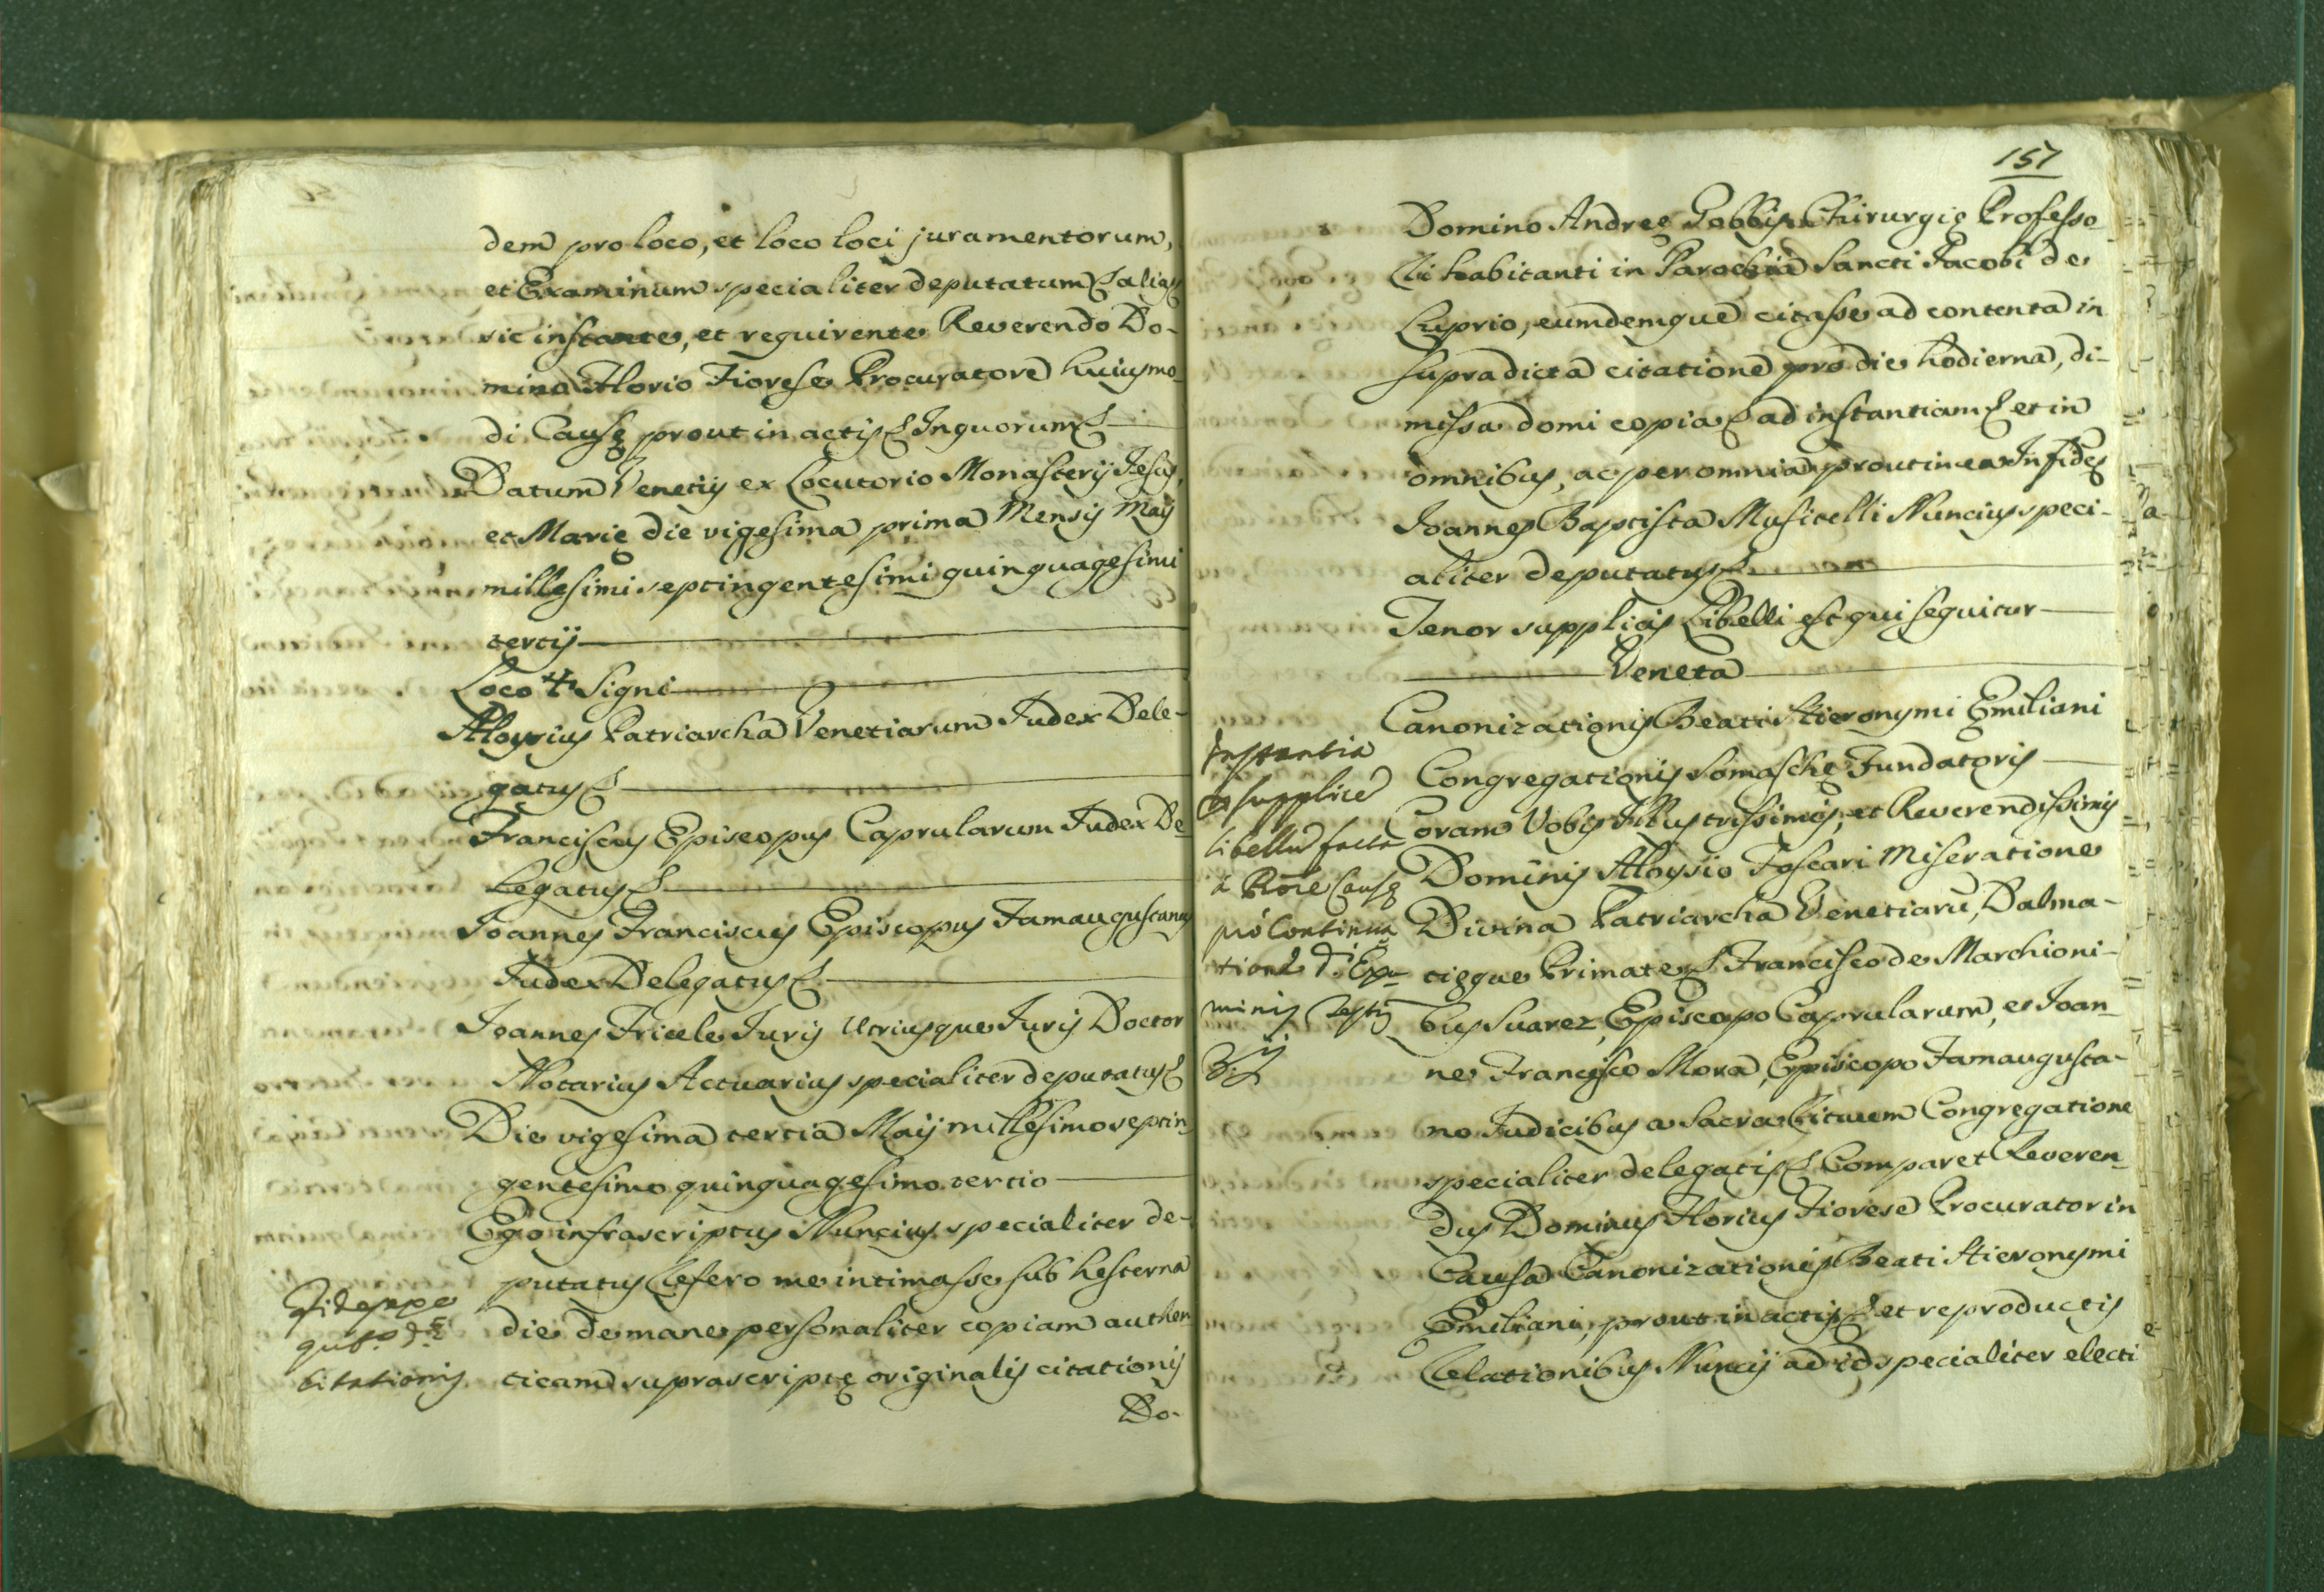 dem pro loco, et loco loci juramentorum,
et Examinum specialiter deputatum & alias
sic instante, et requirente Reverendo Do-
mino Florio Fiorese Procuratore huiusmo-
di Causę prout in actis & Inquorum &
Datum Venetijs ex Locutorio Monasterij Jesus,
et Marię die vigesima prima Mensis Maij
millesimi septingentesimi quinquagesimi
tertij
Loco ✝ Signi
Aloysius Patriarcha Venetiarum Judex Dele-
gatus &
Franciscus Episcopus Caprularum Judex De
legatus &
Joannes Franciscus Episcopus Famaugustanus
Judex Delegatus &
Joannes Juris Utriusque Juris Doctor
Notarius Actuarius specialiter deputatus &
Die vigesima tertia Maij millesimo septin
gentesimo quinquagesimo tertio
Ego infrascriptus Nuncius specialiter de-
putatus Refero me intimasse sub hesterna
die de mane personaliter copiam authen
citationis
ticam suprascriptę originalis citationis
Do-
151
Domino Andreę Gobbis Chirurgię Professo
ri habitanti in Parochia Sancti Jacobi de
Luprio, eumdemque citasse ad contenta in
supradicta citatione pro die hodierna, di-
missa domi copia & ad instantiam & et in
omnibus, ac per omnia prout in ea In fidem
Joannes Baptista Musitelli Nuncius speci-
aliter deputatus &
Tenor supplicis Libelli est qui sequitur
Veneta
Canonizationis Beati Hieronymi Emiliani
Congregationis Somaschę Fundatoris
Instantia
et supplice
libellu facta
a Prore Causę
pro continua
tione d. Exa-
minis Testis
Coram Vobis Illustrissimis, et Reverendissimis
Dominis Aloysio Foscari Miseratione
Divina Patriarcha Venetiarũ, Dalma-
tięque Primate & Francisco de Marchioni-
bus Suarez, Episcopo Caprularum, et Joan-
ne Francisco Mora, Episcopo Famaugusta-
no Judicibus a Sacra Rituum Congregatione
specialiter delegatis & Comparet Reveren-
dus Dominus Florius Fiorese Procurator in
Causa Canonizationis Beati Hieronymi
Emiliani, prout in actis & et reproductis
Relationibus Nuncij ad id specialiter electi